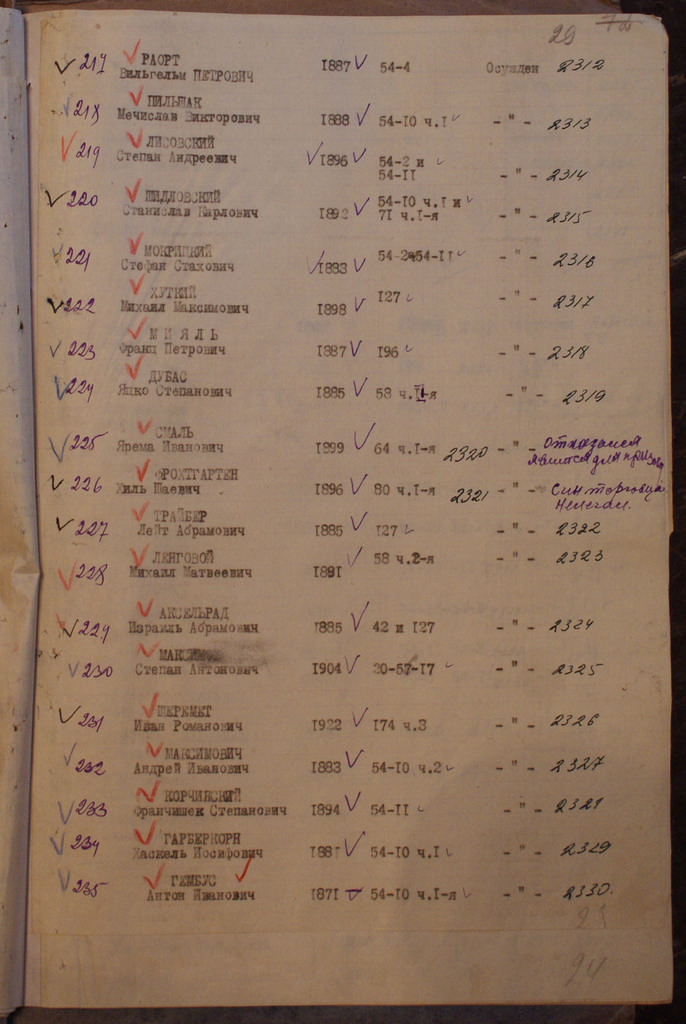 29
217 РАОРТ
Вильгельм ПЕТРОВИЧ 1887 54-4 Осужден 2312
218 ПИЛЬШАК
Мечислав Викторович 1888 54-10 ч.I - " - 2313
219 ЛИСОВСКИЙ
Степан Андреевич 1896 54-2 и
54-II - " - 2314
220 ШИДЛОВСКИЙ 54-10 ч.I и
Станислав Карлович 1892 71 ч.I-я - " - 2315
221 МОКРИЦКИЙ 54-2 54-II
Стефан Стахович 1883 - " - 2316
222 ХУТКИЙ 127
Михаил Максимович 1898 - " - 2317
223 М И Я Л Ь
Франц Петрович 1887 196 - " - 2318
224 ДУБАС
Яцко Степанович 1885 58 ч.II-я - " - 2319
225 СМАЛЬ
Ярема Иванович 1899 64 ч.I-я 2320 - " - отказался
явится для
226 ФРОХТГАРТЕН
Хиль Шаевич 1896 80 ч.I-я 2321 - " - син торговца
Нелегал.
227 ТРАЙБЕР
Лейт Абрамович 1885 127 - " - 2322
228 ЛЕНГОВОЙ 58 ч.2-я - " - 2323
Михаил Матвеевич 1891
229 АКСЕЛЬРАД
Израиль Абрамович 1885 42 и 127 - " - 2324
230
Степан Антонович 1904 20-57-17 - " - 2325
231 ШЕРЕМЕТ
Иван Романович 1922 174 ч.3 - " - 2326
232 МАКСИМОВИЧ
Андрей Иванович 1883 54-10 ч.2 - " - 2327
233 КОРЧИНСКИЙ
Франчишек Степанович 1894 54-II - " -
234 ГАРБЕРКОРН
Хаскель Иосифович 54-10 ч.I - " - 2329
235 ГЕМБУС
Антон Иванович 1871 54-10 ч.I-я - " - 2330.
24